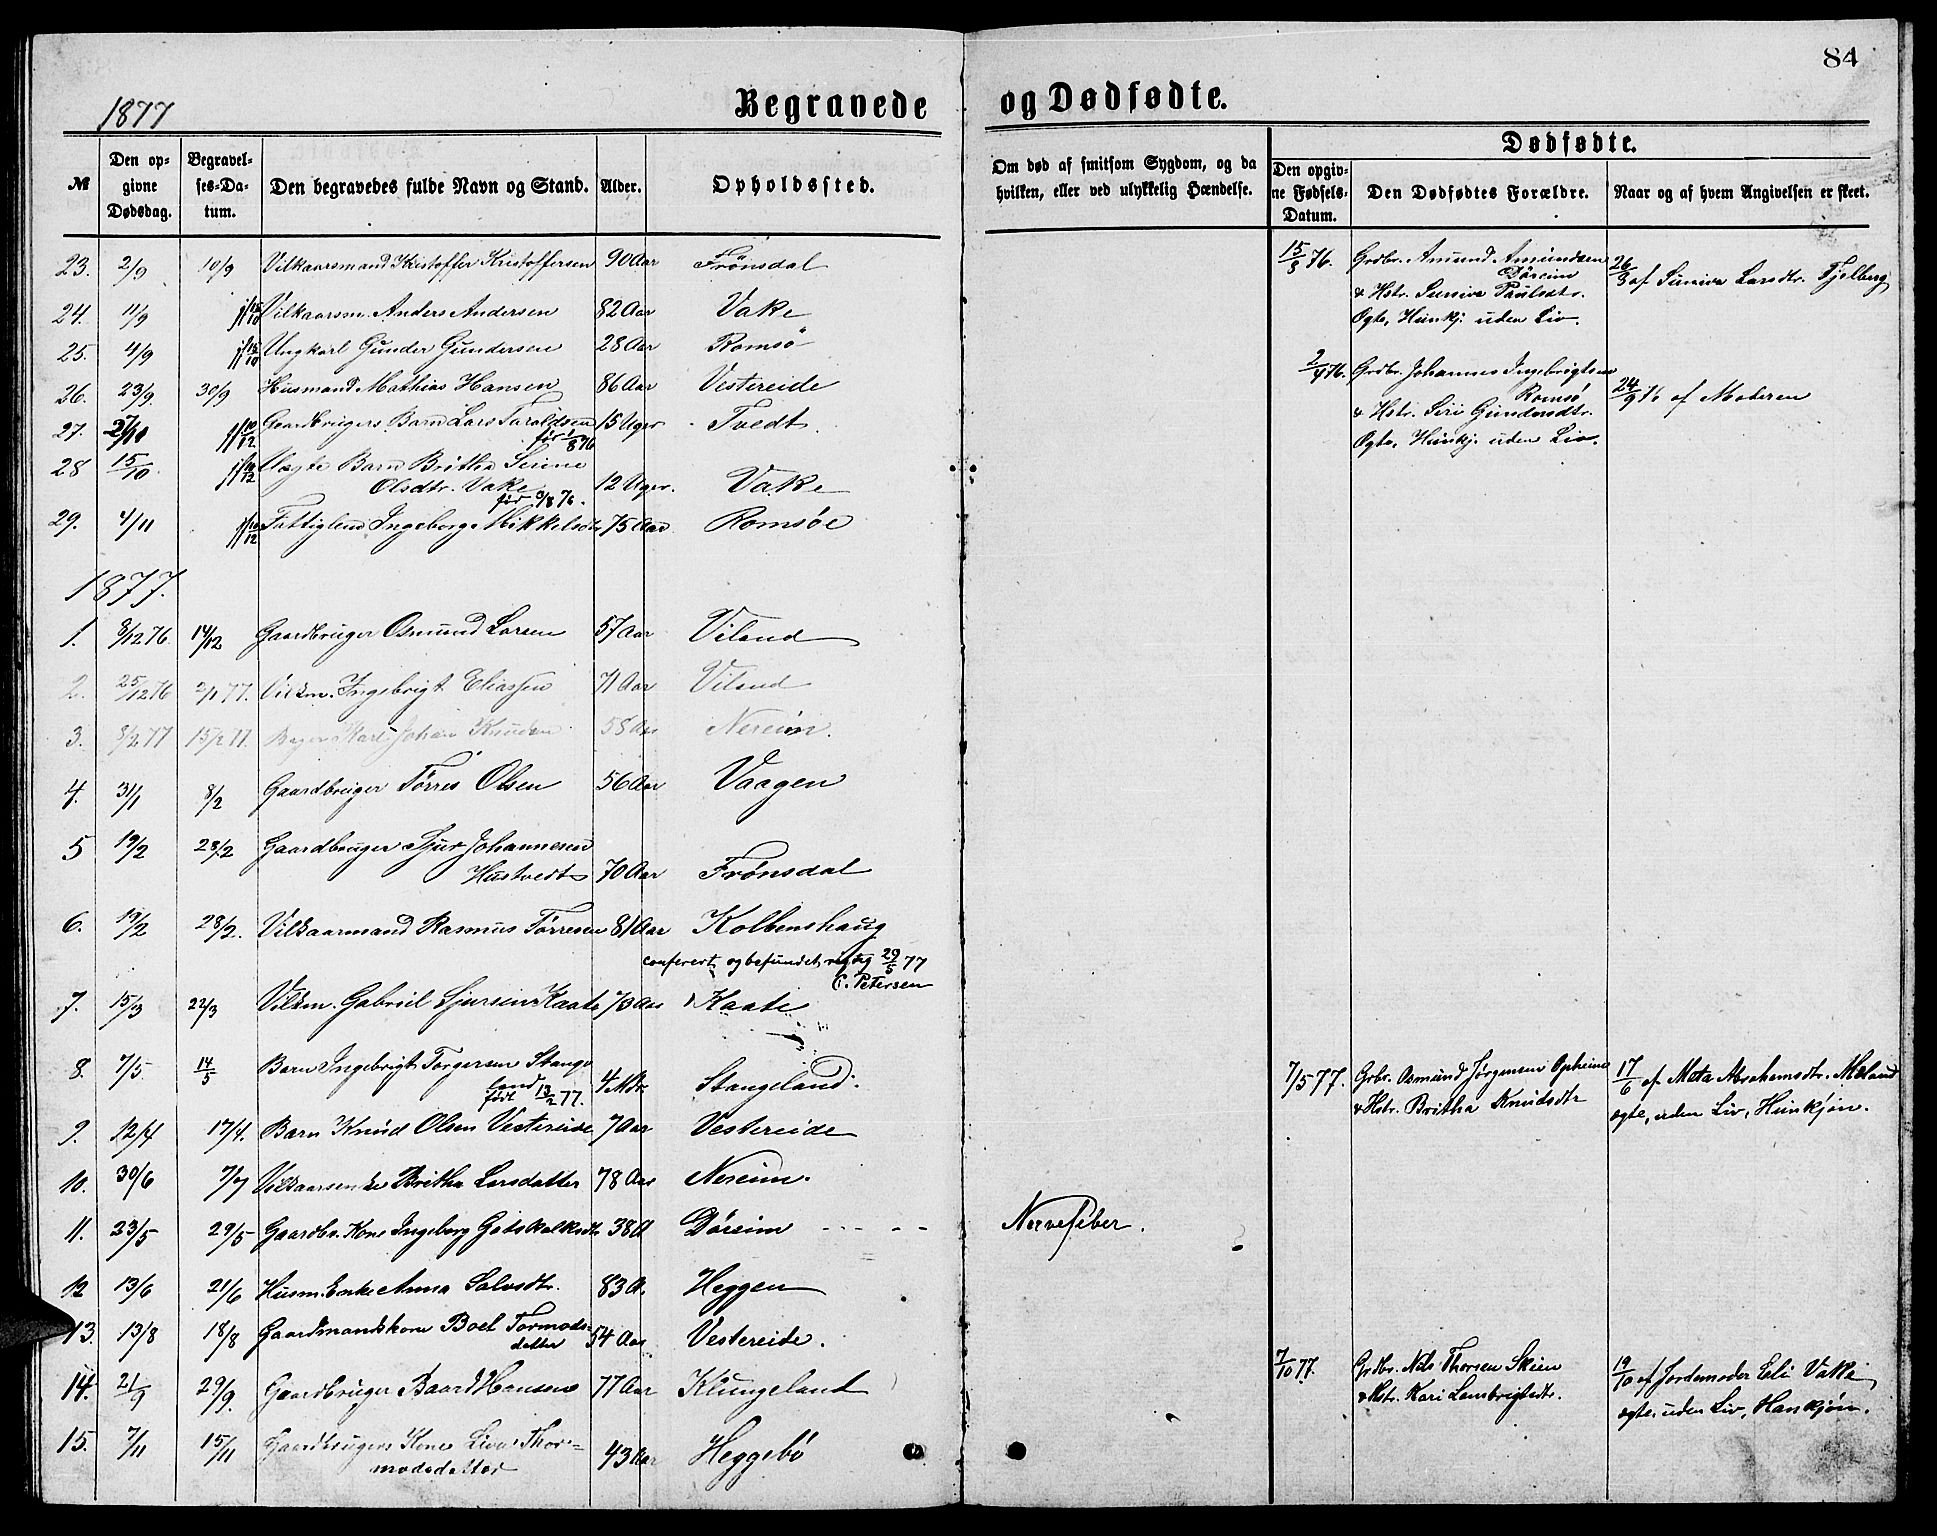 84
1877
Begravede og Dødfødte.
№
Den opgivne Dødsdag.
Begravelses-Datum.
Den begravedes fulde Navn og Stand.
Alder.
Opholdssted.
Om død af smitsom Sygdom, og da hvilken, eller ved ulykkelig Hændelse.
Dødfødte.
Den opgivne Fødsels-Datum.
Den Dødfødtes Forældre.
Naar og af hvem Angivelsen er skeet.
23. 2/9 10/9 Vilkaarsmand Kristoffer Kristoffersen 90 Aar Frönsdal
24. 11/9 Vilkaarsm. Anders Andersen 82 Aar Vake
25. 4/9 Ungkarl Gunder Gundersen 28 Aar Romsö
26. 23/9. 30/9 Husmand Mathias Hansen 86 Aar Vestereide
27. 27/11 Gaardbrugers Barn Lars Taraldsen 15 Uger Tvedt.
28 15/10. Uægte Barn Britha Serine
Olsdtr. Vake 12 Uger. Vake
29. 4/11 Fattiglem Ingeborg Mikkelsdtr 75 Aar Romsöe
1877.
1. 8/12 76 14/12 Gaardbruger Osmund Larsen 57 Aar Viland
2. 25/12 76 2/1 77. Vilkm. Ingebrigt Eliassen 71 Aar Viland
3. 8/2 77 15/2 77. Karl Johan Knudsen 58 Aar Nereim.
4. 31/1 8/2 Gaardbruger Tørres Olsen 56 Aar Vaagen
5 19/2 28/2 Gaardbruger Sjur Johannesen
Hustvedt 70 Aar Frönsdal
6. 19/2 28/2. Vilkaarmand Rasmus Tørresen 81 Aar Kolbenshaug
conferert og befundet rigtig 29/5 77
C. Petersen
7. 15/3 22/3 Vilkm. Gabriel Sjursen Kaate 73 Aar Kaate
8. 7/5 14/5 Barn Ingebrigt Torgersen Stange
land
født 13/2 77. 4 Mdr. Stangeland.
9. 12/4 17/4. Barn Knud Olsen Vestereide 7 Aar Vestereide
10. 30/6 7/7 Vilkaarsenke Britha Larsdatter 78 Aar Nereim.
11. 23/5 29/5 Gaardbr. Kone Ingeborg Gotskalksdtr 38 A Döreim Nervefeber.
12 13/6 21/6 Husm. Enke Anna Salvsdtr. 83 A. Heggen
13. 13/8 18/8 Gaardmandskone Boel Tormods-
datter 54 Aar Vestereide.
14. 21/9 29/9. Gaardbruger Baard Hansen 77 Aar Klungeland
15. 7/11 15/11 Gaardbrugers Kone Liva Thor-
modsdatter 43 Aar Heggebö
15/3 76. Grdbr. Amund Amundsen
Döreim
& Hstr. Sunniva Paulsdtr.
Ægte, Hunkj. uden Liv.
26/3 af Sunniva Larsdtr. Fjelberg
2/4 76. Grdbr. Johannes Ingebrigtsen
Romsö
& Hstr. Siri Gundersdtr.
Ægte, Hunkj. uden Liv.
24/9 76 af Moderen
7/5 77. Grbr. Osmund Jørgensen Opheim
& Hstr. Britha Knudsdtr
17/6 af Meta Abrahamsdtr. Mæland
ægte, uden Liv, Hunkjøn.
7/10 77. Grdbr. Nils Thorsen Skien
& Hstr. Kari Lambrigtsdtr.
19/10 af Jordemoder Eli Vake
ægte, uden Liv, Hankjøn.